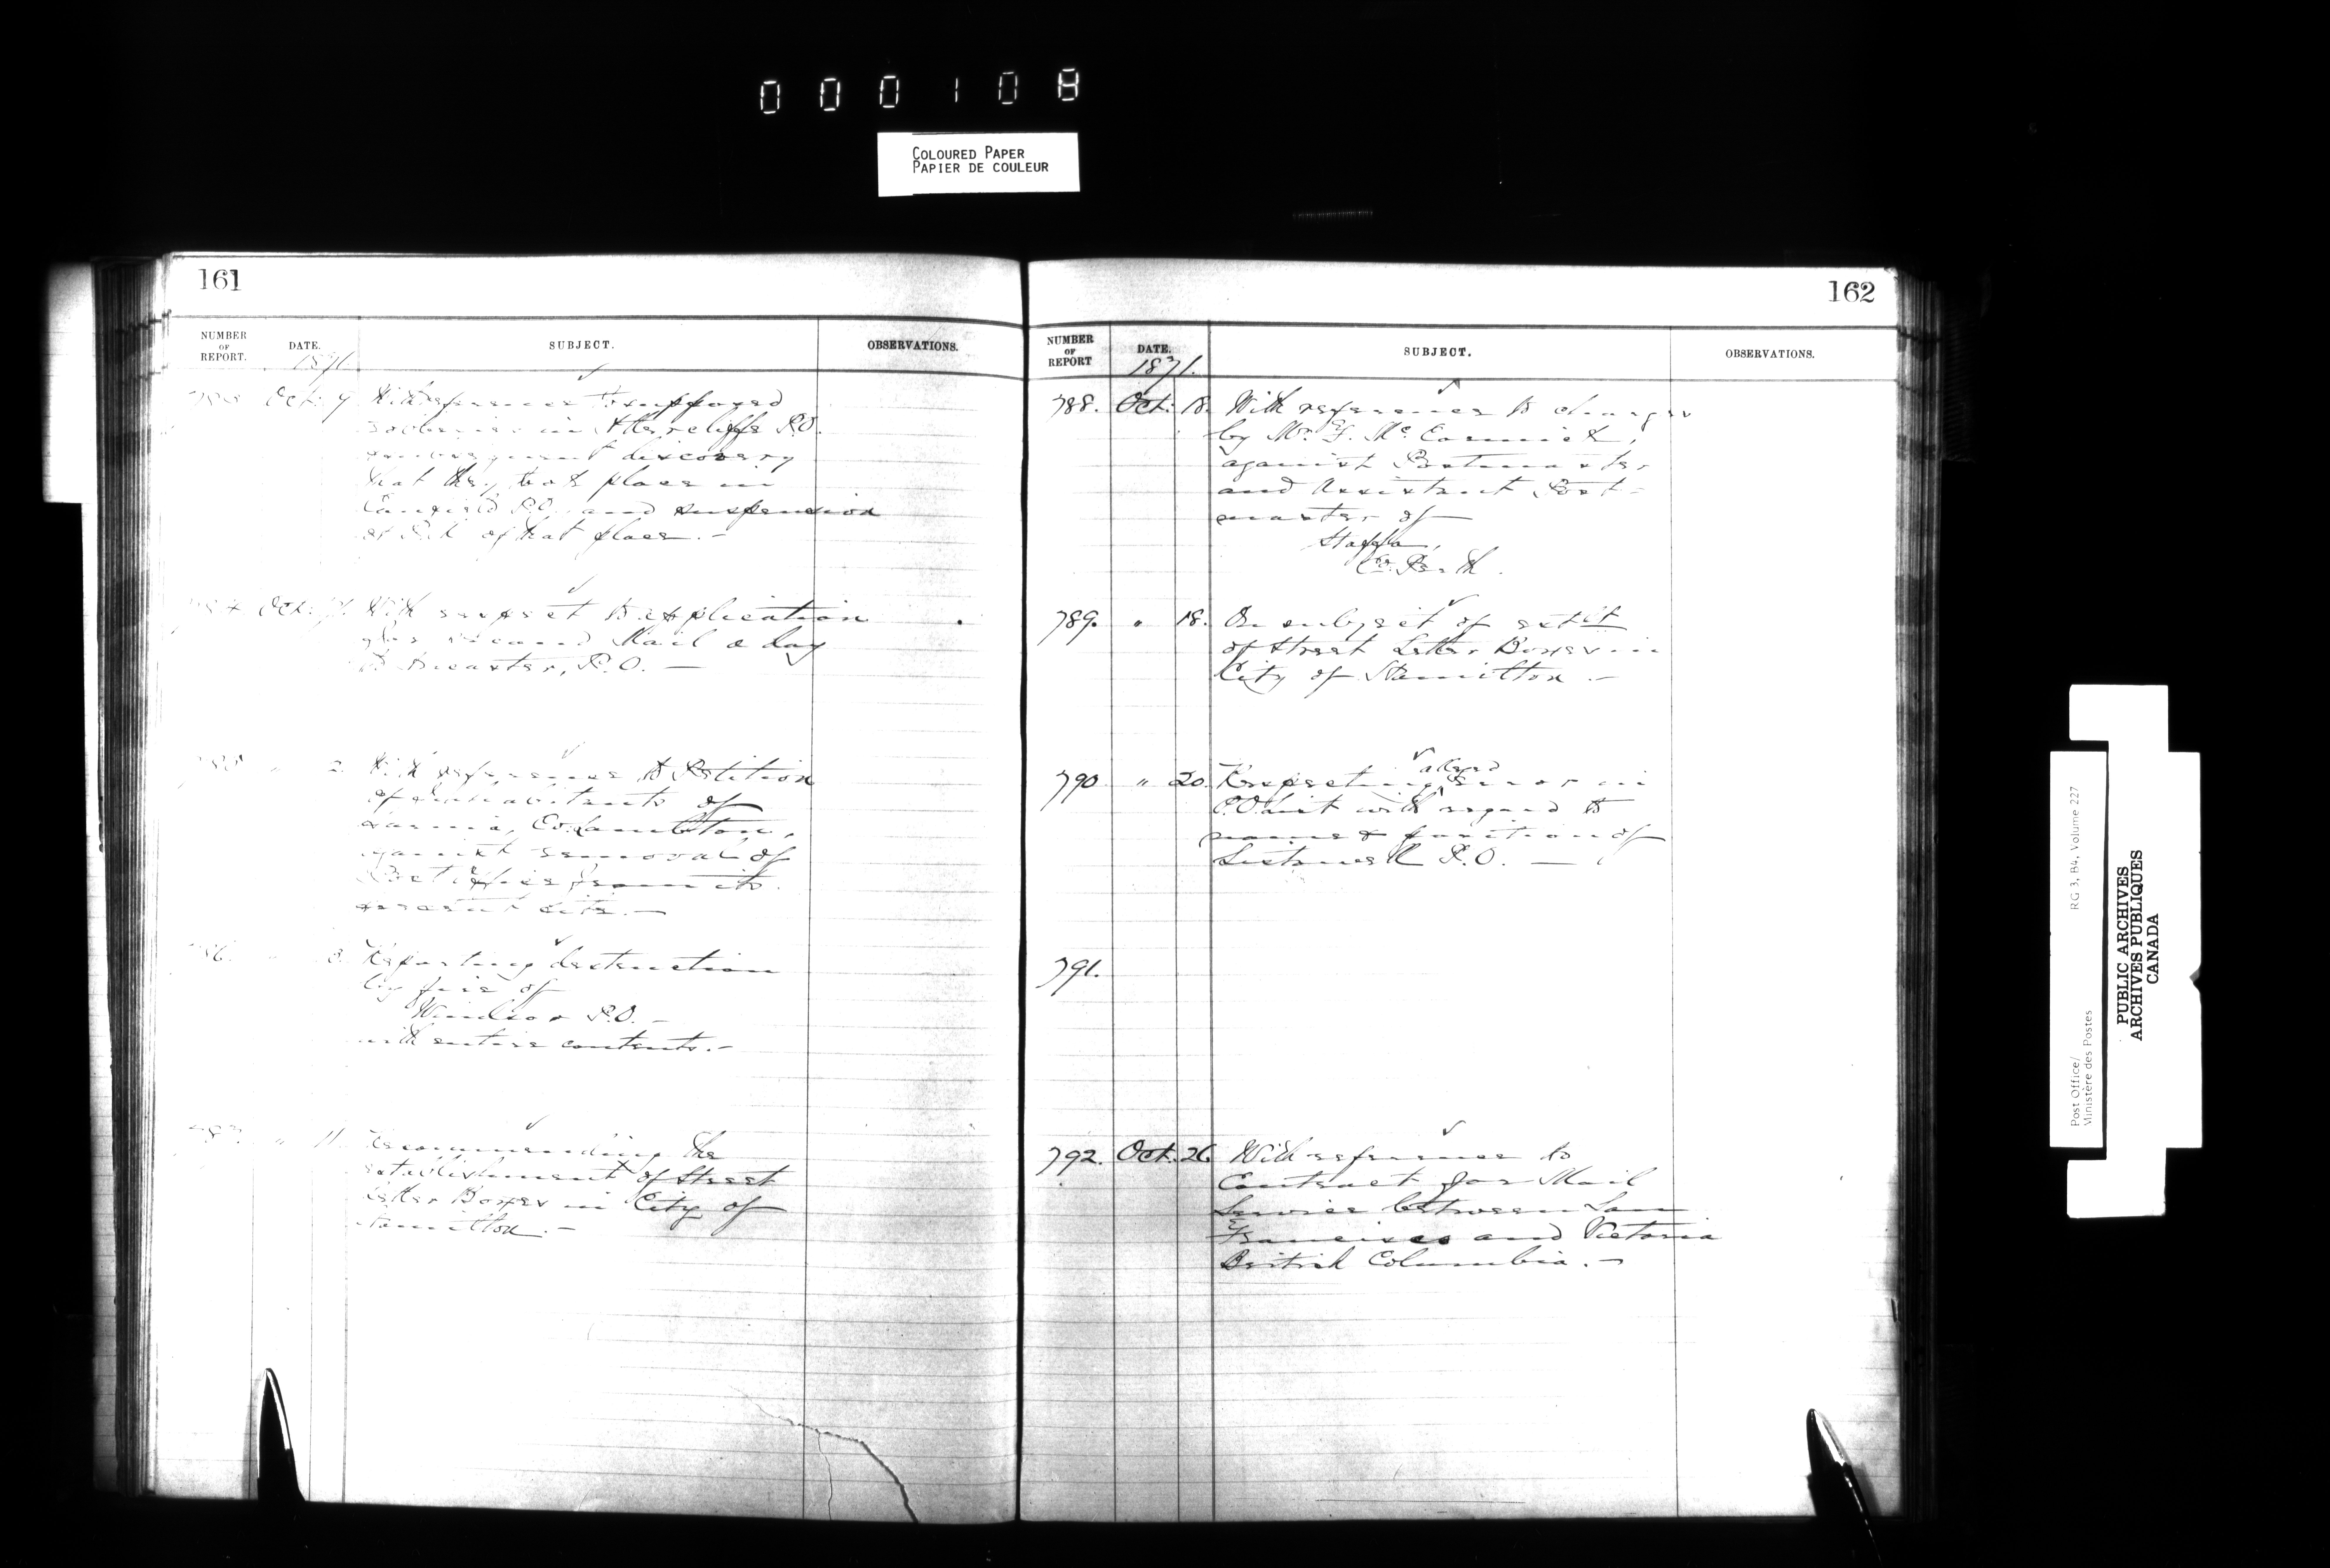 000108
COLOURED PAPER
PAPIER DE COULEUR
161
NUMBER OF REPORT.
DATE.
SUBJECT.
OBSERVATIONS.
1871
Oct. 7 With reference to supposed
in P.O.
subsequent discovery
that they took place in
P.O. and suspension
of P.M. of that place. -
Oct. With respect to application
for second Mail a day
to P.O. —
2. With reference to Petition
of inhabitants of
Sarnia, Co. Lambton,
against removal of
Post Office from its
present site. —
3. Reporting destruction
by fire of
Windsor P.O. -
with entire contents. -
" 11. Recommending the
establishment of Street
Letter Boxes in City of
Hamilton. -
162
NUMBER OF REPORT
DATE.
SUBJECT.
OBSERVATIONS.
1871.
788. Oct. 18. With reference to charges
by Mr. F. McCormick,
against Postmaster
and Assistant Post-
master of
Staffa,
Co. Perth.
789. " 18. On subject of estbt
of Street Letter Boxes in
City of Hamilton. -
790 " 20. Respecting alleged error in
P.O. List with regard to
name & position of
Listowell P.O. —
791.
792. Oct. 26 With reference to
Contract for Mail
Service between San
Francisco and Victoria
British Columbia. -
Post Office/
Ministère des Postes
RG 3, B4, Volume 227
PUBLIC ARCHIVES
ARCHIVES PUBLIQUES
CANADA